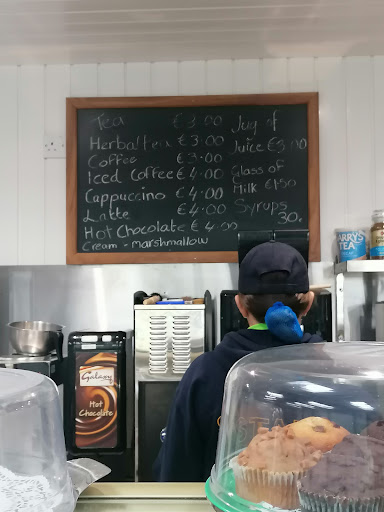 Tea €3.00
Herbal tea €3.00
Coffee €3.00
Iced Coffee €4.00
Cappuccino €4.00
Latte €4.00
Hot Chocolate €4.00
Cream - marshmallow
Jug of
Juice €5.00
Glass of
Milk €1.50
Syrups
30.
BARRY'S
TEA
Galaxy
Hot
Chocolate